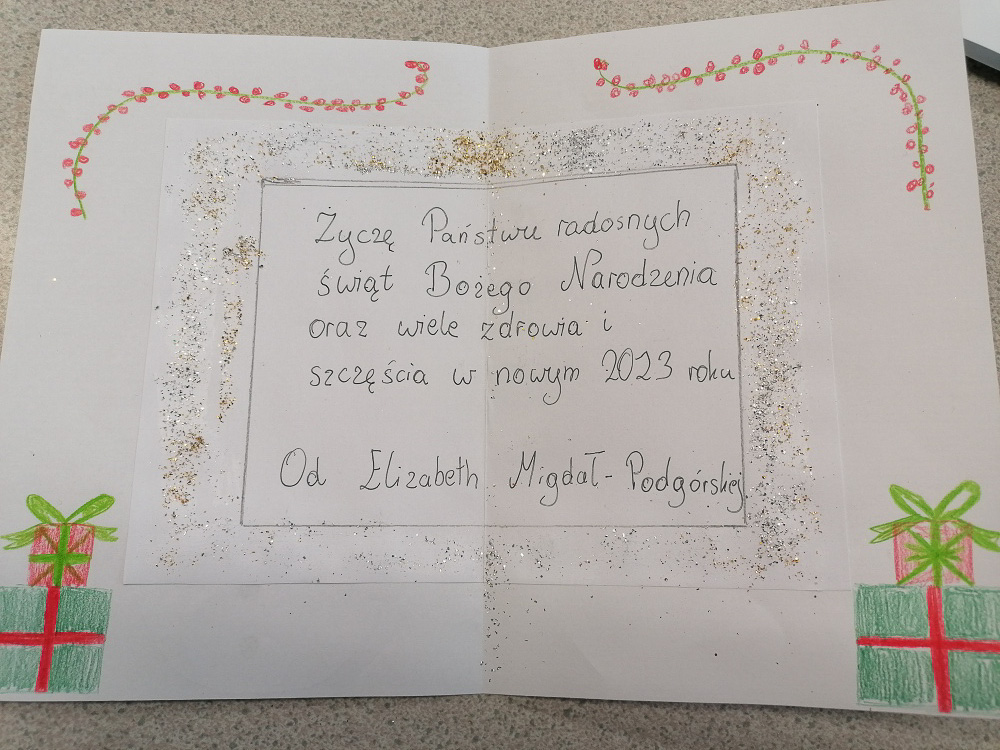 Życzę Państwu radosnych
świąt Bożego Narodzenia
oraz wiele zdrowia i
szczęścia w nowym 2023 roku
Od Elizabeth Migdał-Podgórskiej